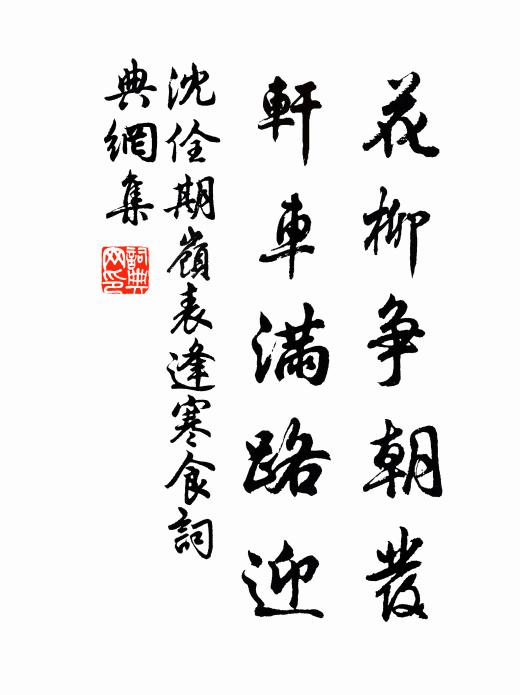 花柳争朝發
軒車滿路迎
沈佺期嶺表逢寒食詞
典網集
詞典網印